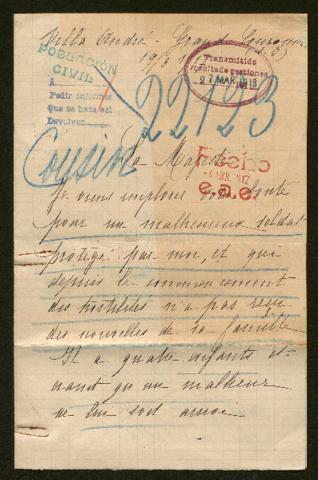 Villa André - Grand
19/3 1917
POBLACIÓN
CIVIL
A
Pedir informes
Que se haga así
Devolver
Transmitido
27 MAR. 1918
22123
Cousin
Majesté
Fecho
ABR. 1917
e.a.e.
Je viens implorer votre bonté
pour un malheureux soldat
protégé par moi, et qui
depuis le commencement
des hostilités n'a pas reçu
des nouvelles de sa famille
Il a quatre enfants et
craint qu'un malheur
ne leur soit arrivé.